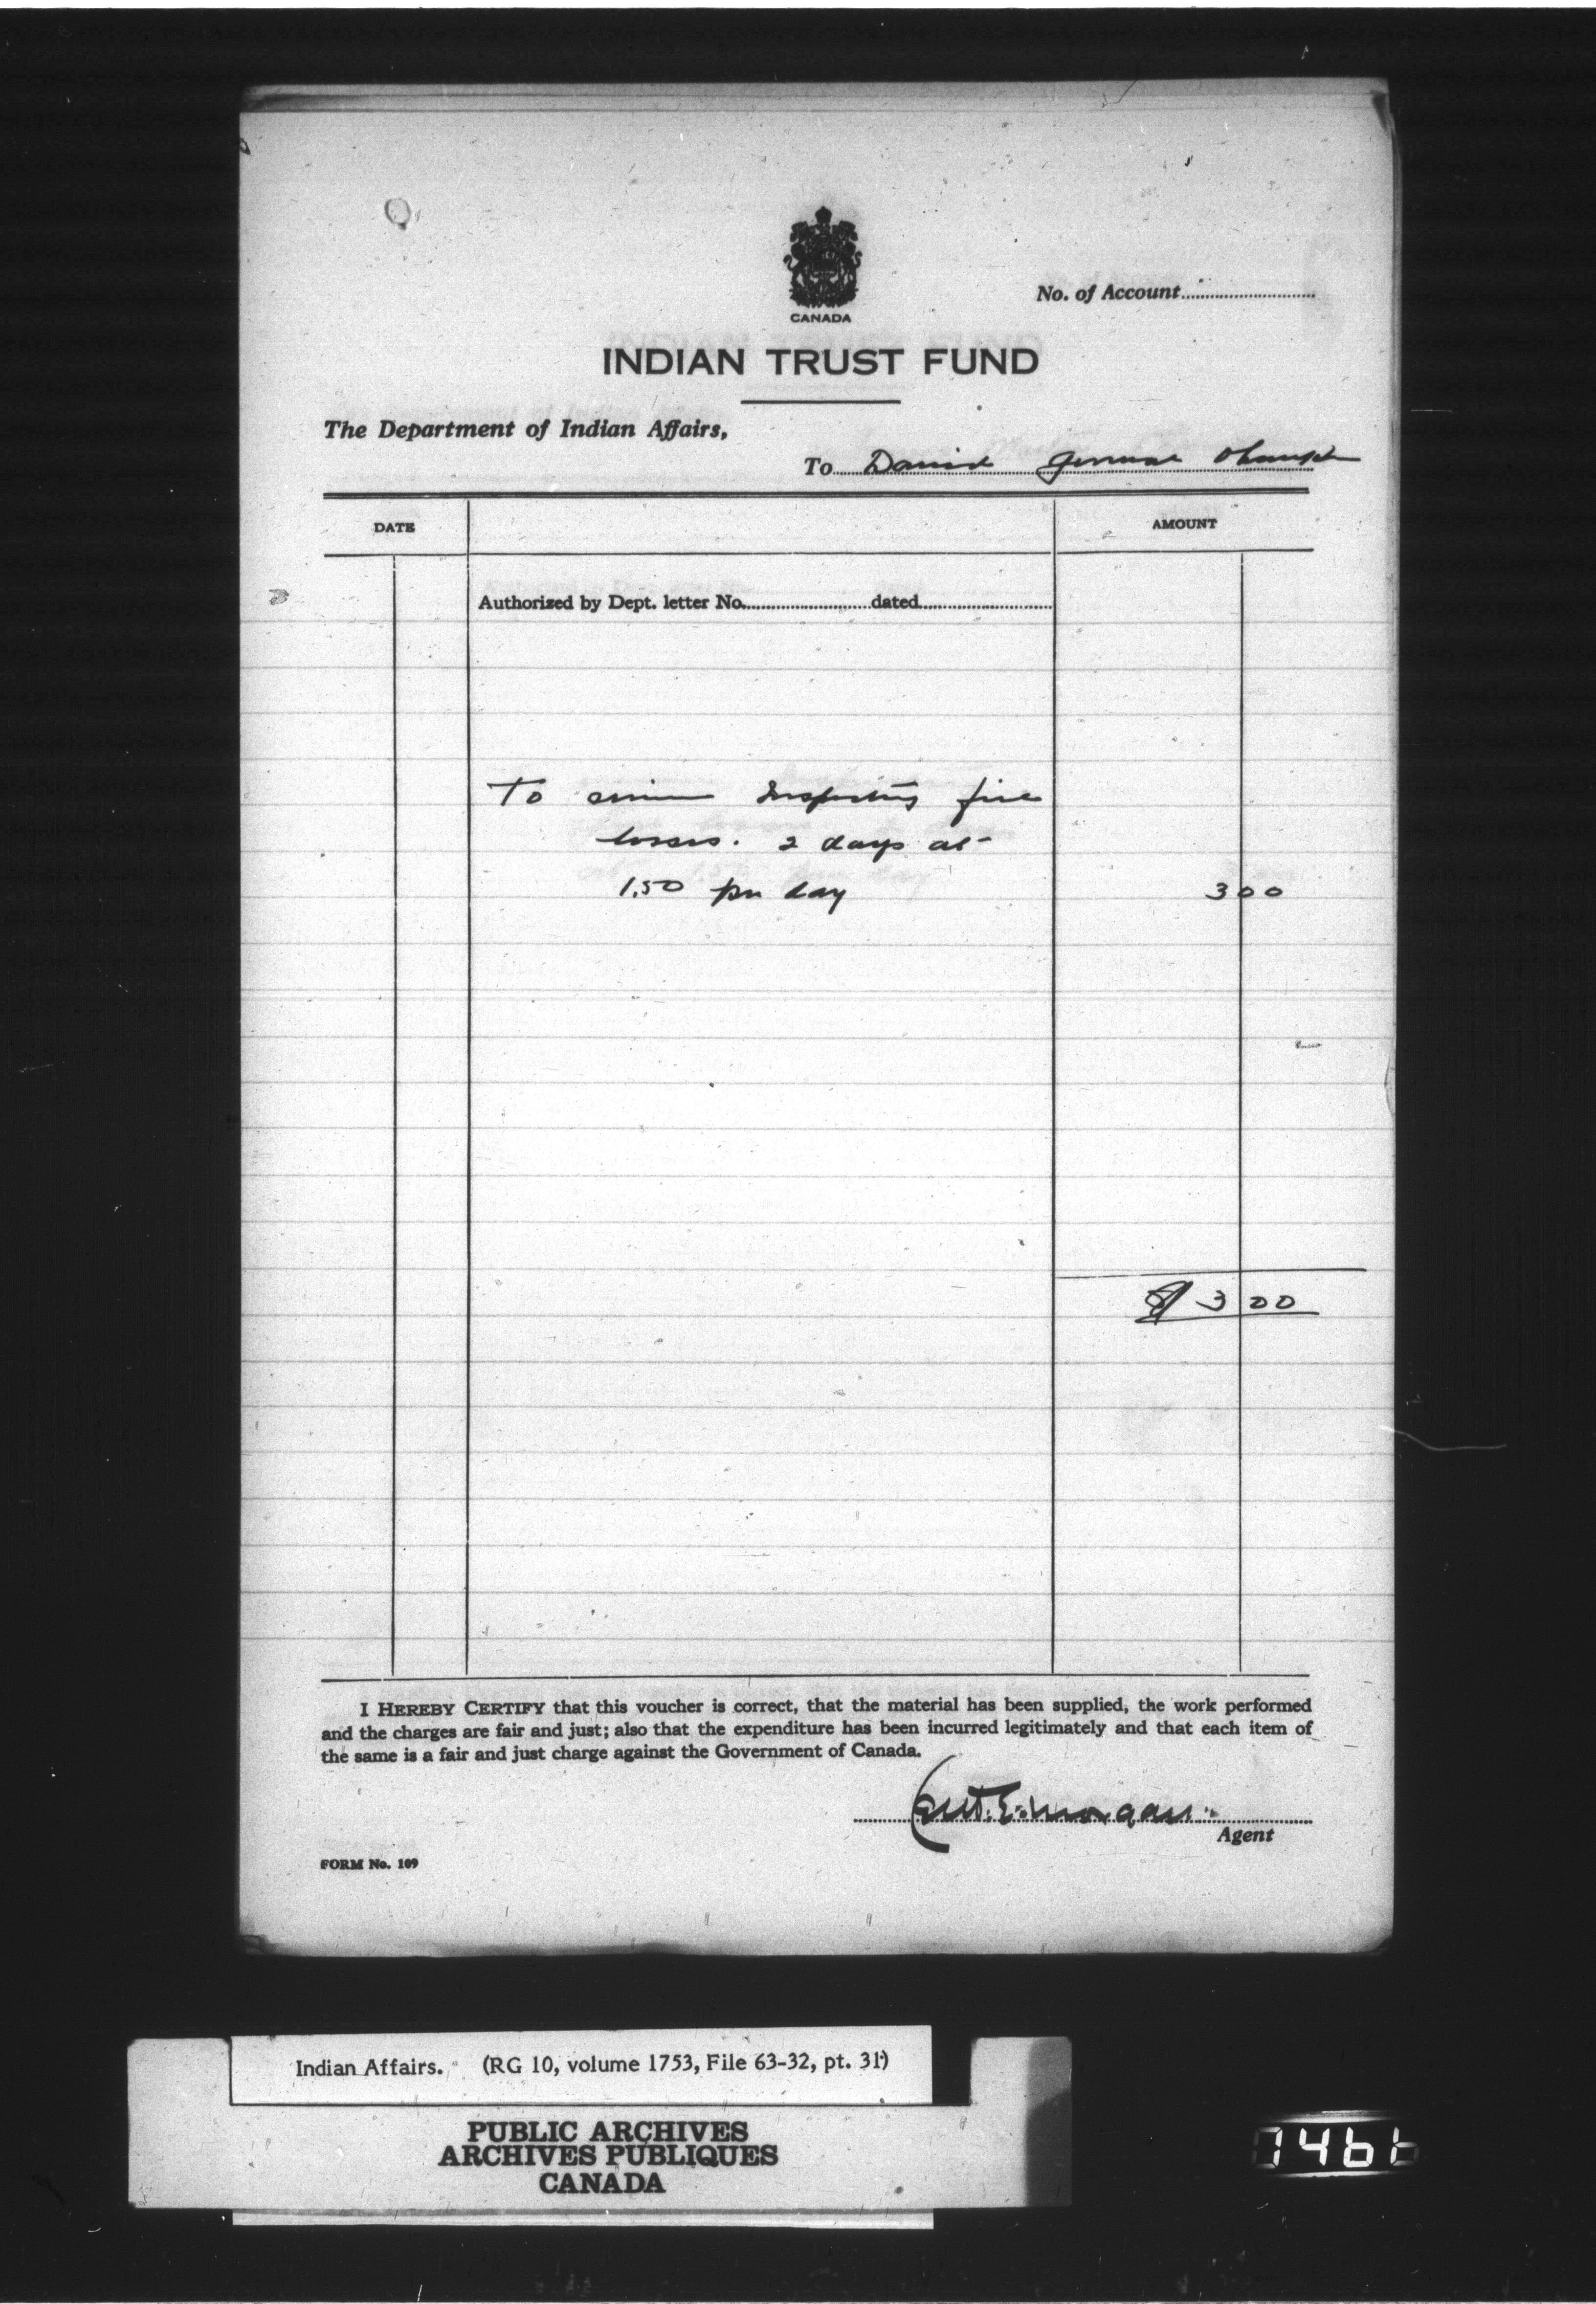 CANADA
No. of Account
INDIAN TRUST FUND
The Department of Indian Affairs,
To David General Ohsweken
DATE
AMOUNT
Authorized by Dept. letter No. dated
To Inspecting fire
losses. 2 days at
1.50 per day 3 00
$ 3 00
I HEREBY CERTIFY that this voucher is correct, that the material has been supplied, the work performed
and the charges are fair and just; also that the expenditure has been incurred legitimately and that each item of
the same is a fair and just charge against the Government of Canada.
E. Morgan
Agent
FORM No. 109
Indian Affairs. (RG 10, volume 1753, File 63-32, pt. 31)
PUBLIC ARCHIVES
ARCHIVES PUBLIQUES
CANADA